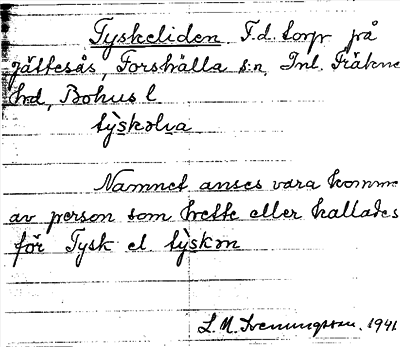 Tyskeliden F.d. torp på
Jättesås, Forshälla s:n, Inl. Fräkne
hd, Bohus l
tÿskəlia
Namnet anses vara komme
av person som hette eller kallades
för Tysk el. tÿskən
L. M. Svenungsson. 1941